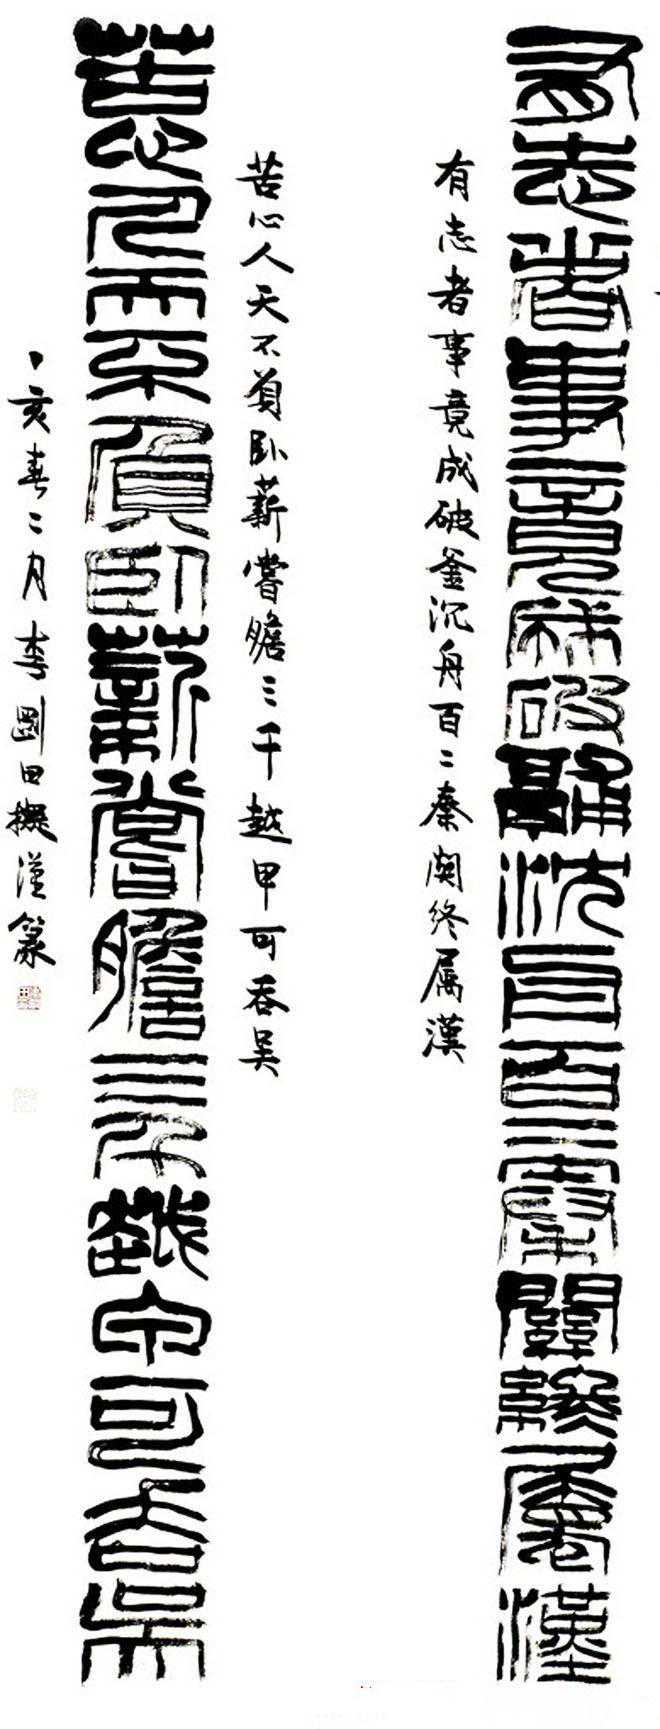 有志者事竟成破鬴沈舟百二秦關終屬漢
有志者事竟成破釜沉舟百二秦関终属漢
苦心人天不負卧薪嘗膽三千越甲可吞吴
苦心人天不負臥薪嘗膽三千越甲可吞吳
丁亥春二月李剛田擬漢篆